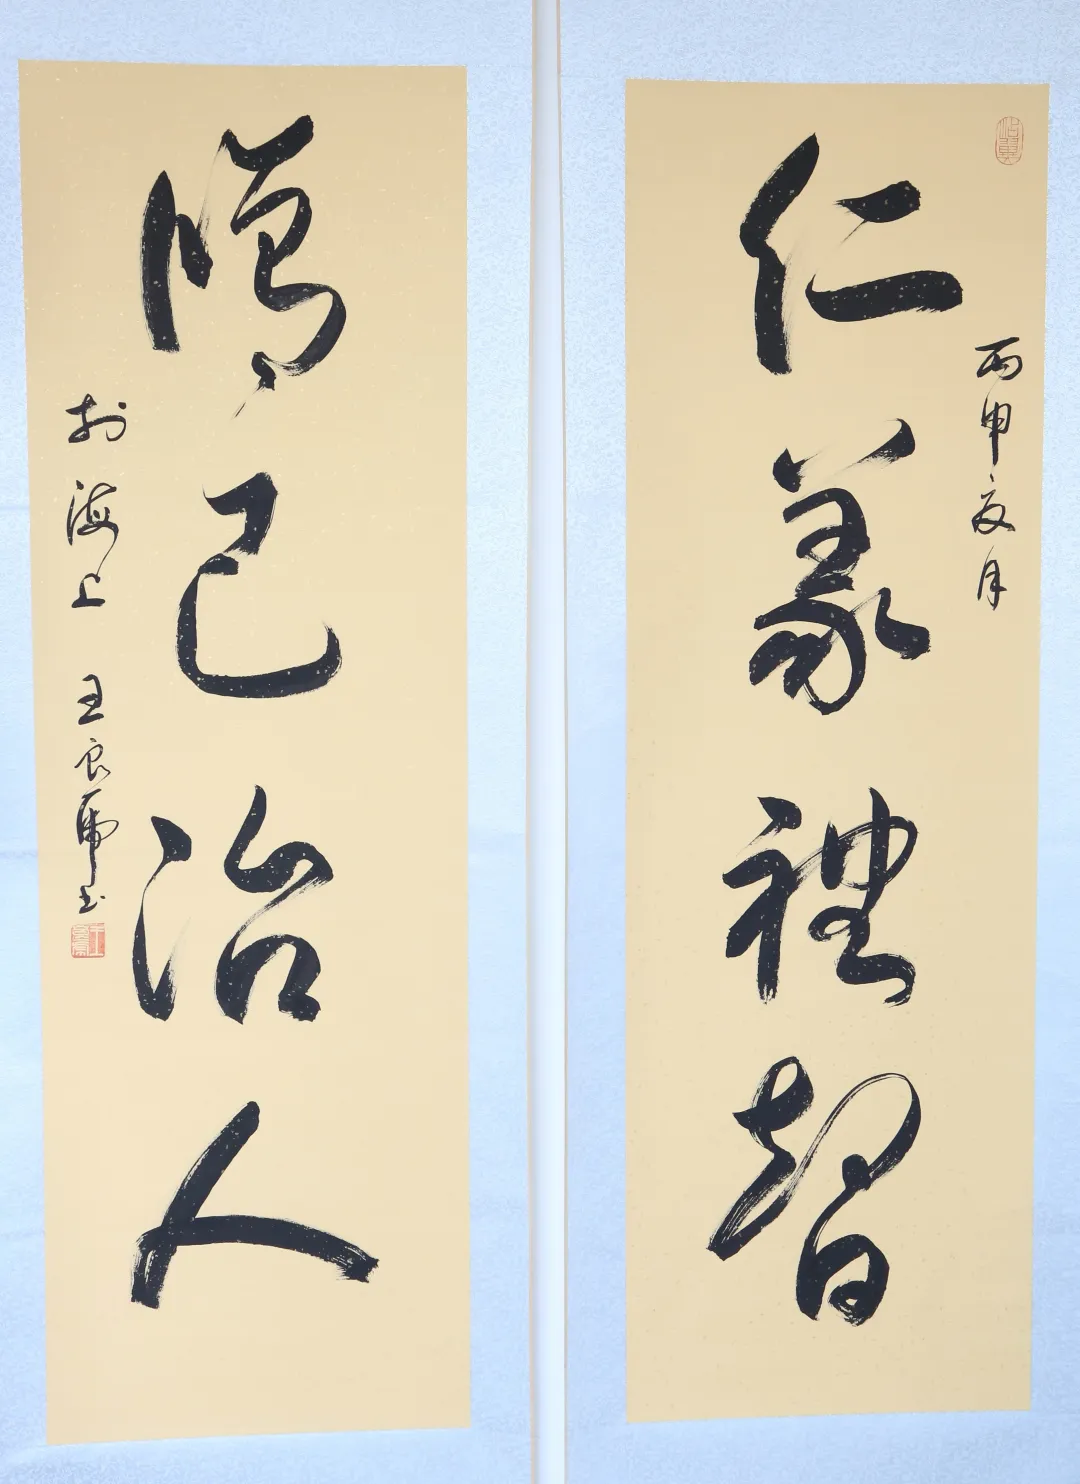 仁義禮智
丙申夏月
修己治人
於海上 王良虎書